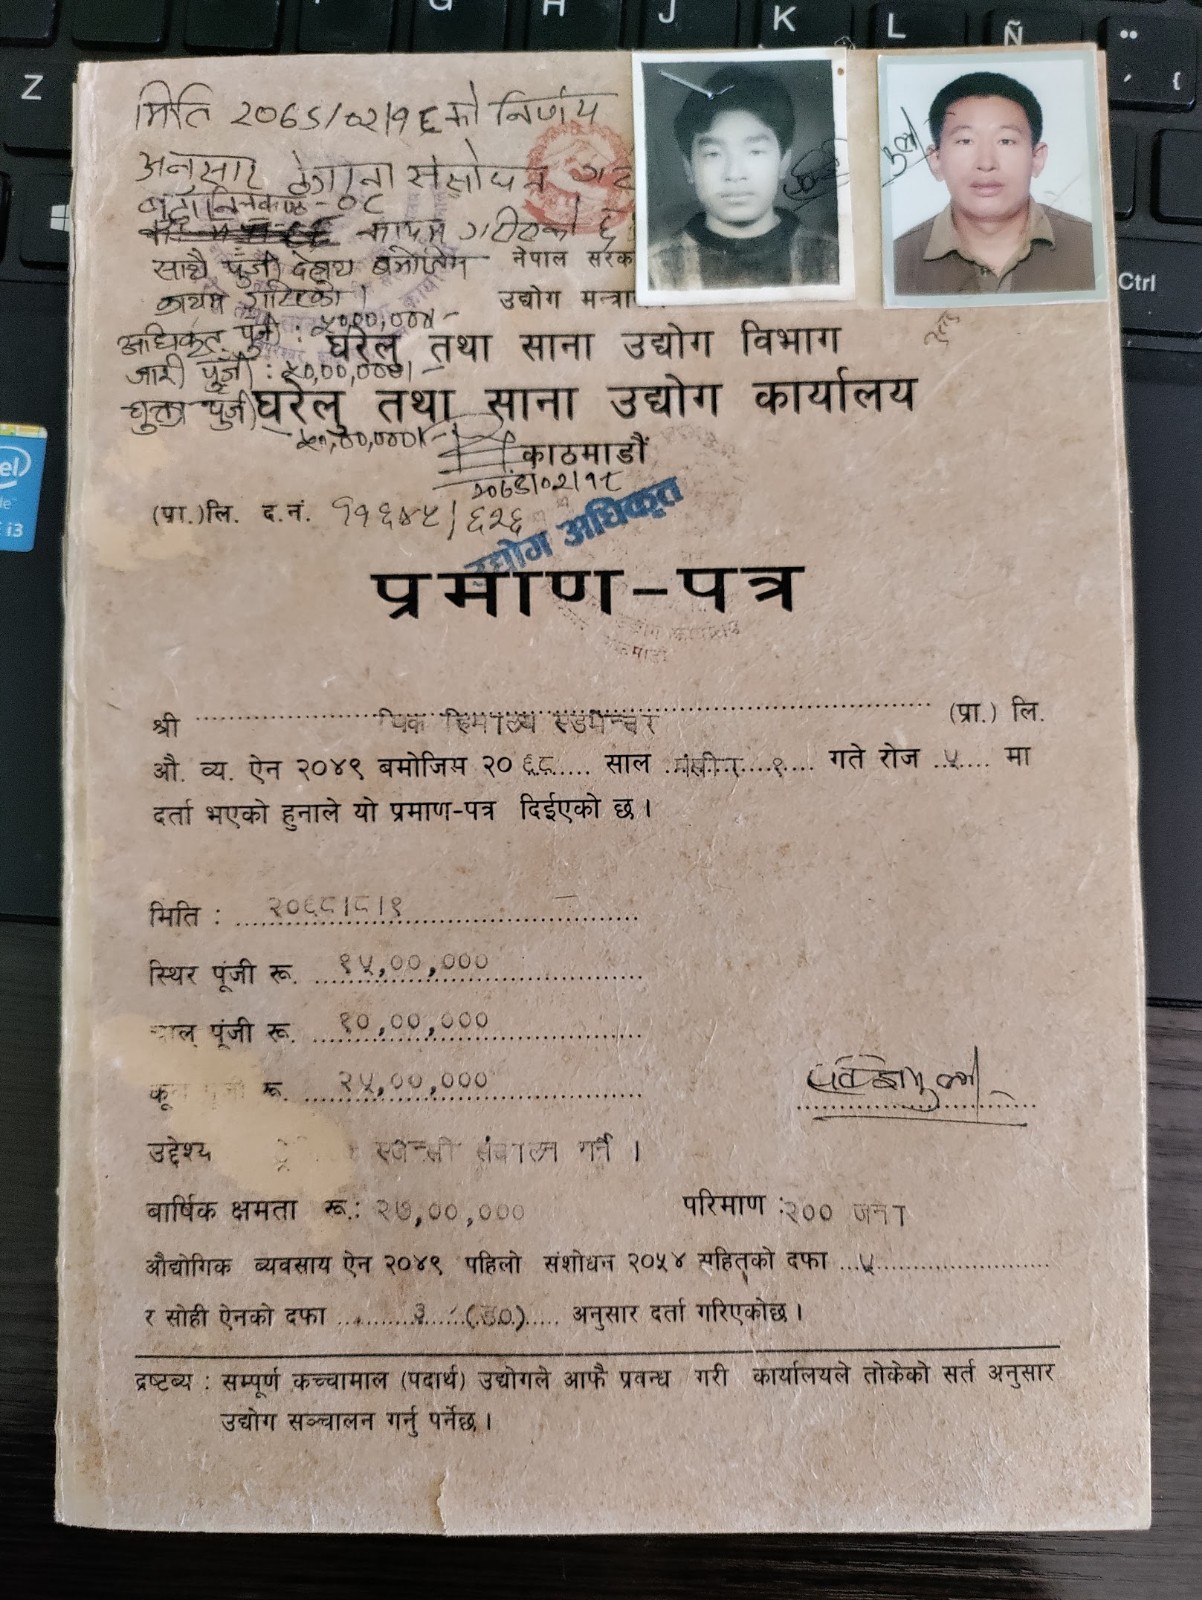 मिति २०६५/०२/१६ को निर्णय
अनुसार संसोधन
कायम गरीएको
साथै पूंजी देहाय बमोजिम नेपाल सरका
कायम गरिएको । उद्योग मन्त्रा
अधिकृत पूंजी : ५०,००,०००/-
घरेलु तथा साना उद्योग विभाग
जारी पूंजी : ५०,००,०००/-
घरेलु तथा साना उद्योग कार्यालय
चुक्ता पूंजी ५०,००,०००/-
काठमाडौं
(प्रा.)लि. द.नं. ११६४५/६२६
उद्योग अधिकृत
प्रमाण-पत्र
श्री पिक हिमालय एडभेन्चर (प्रा.) लि.
औ. व्य. ऐन २०४९ बमोजिम २०६८ साल मंसीर १ गते रोज ५ मा
दर्ता भएको हुनाले यो प्रमाण-पत्र दिईएको छ ।
मिति : २०६८।८।१
स्थिर पूंजी रू. १५,००,०००
चालु पूंजी रू. १०,००,०००
रू. २५,००,०००
उद्देश्य एजेन्सी संचालन गर्ने ।
बार्षिक क्षमता रू.: २७,००,००० परिमाण : २०० जना
औद्योगिक व्यवसाय ऐन २०४९ पहिलो संशोधन २०५४ सहितको दफा ५
र सोही ऐनको दफा ३ अनुसार दर्ता गरिएकोछ ।
द्रष्टब्य : सम्पूर्ण कच्चामाल (पदार्थ) उद्योगले आफै प्रवन्ध गरी कार्यालयले तोकेको सर्त अनुसार
उद्योग सञ्चालन गर्नु पर्नेछ ।
Z
G
H
J
K
L
Ñ
Ctrl
i3